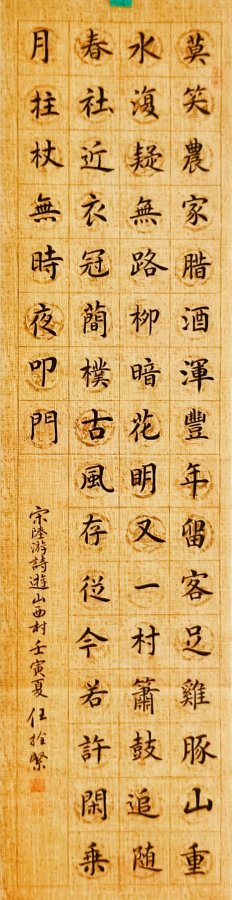 莫笑農家腊酒渾豐年留客足雞豚山重
水復疑無路柳暗花明又一村簫鼓追随
春社近衣冠簡樸古風存從今若許閑乘
月柱杖無時夜叩門
宋陸游詩遊山西村壬寅夏任